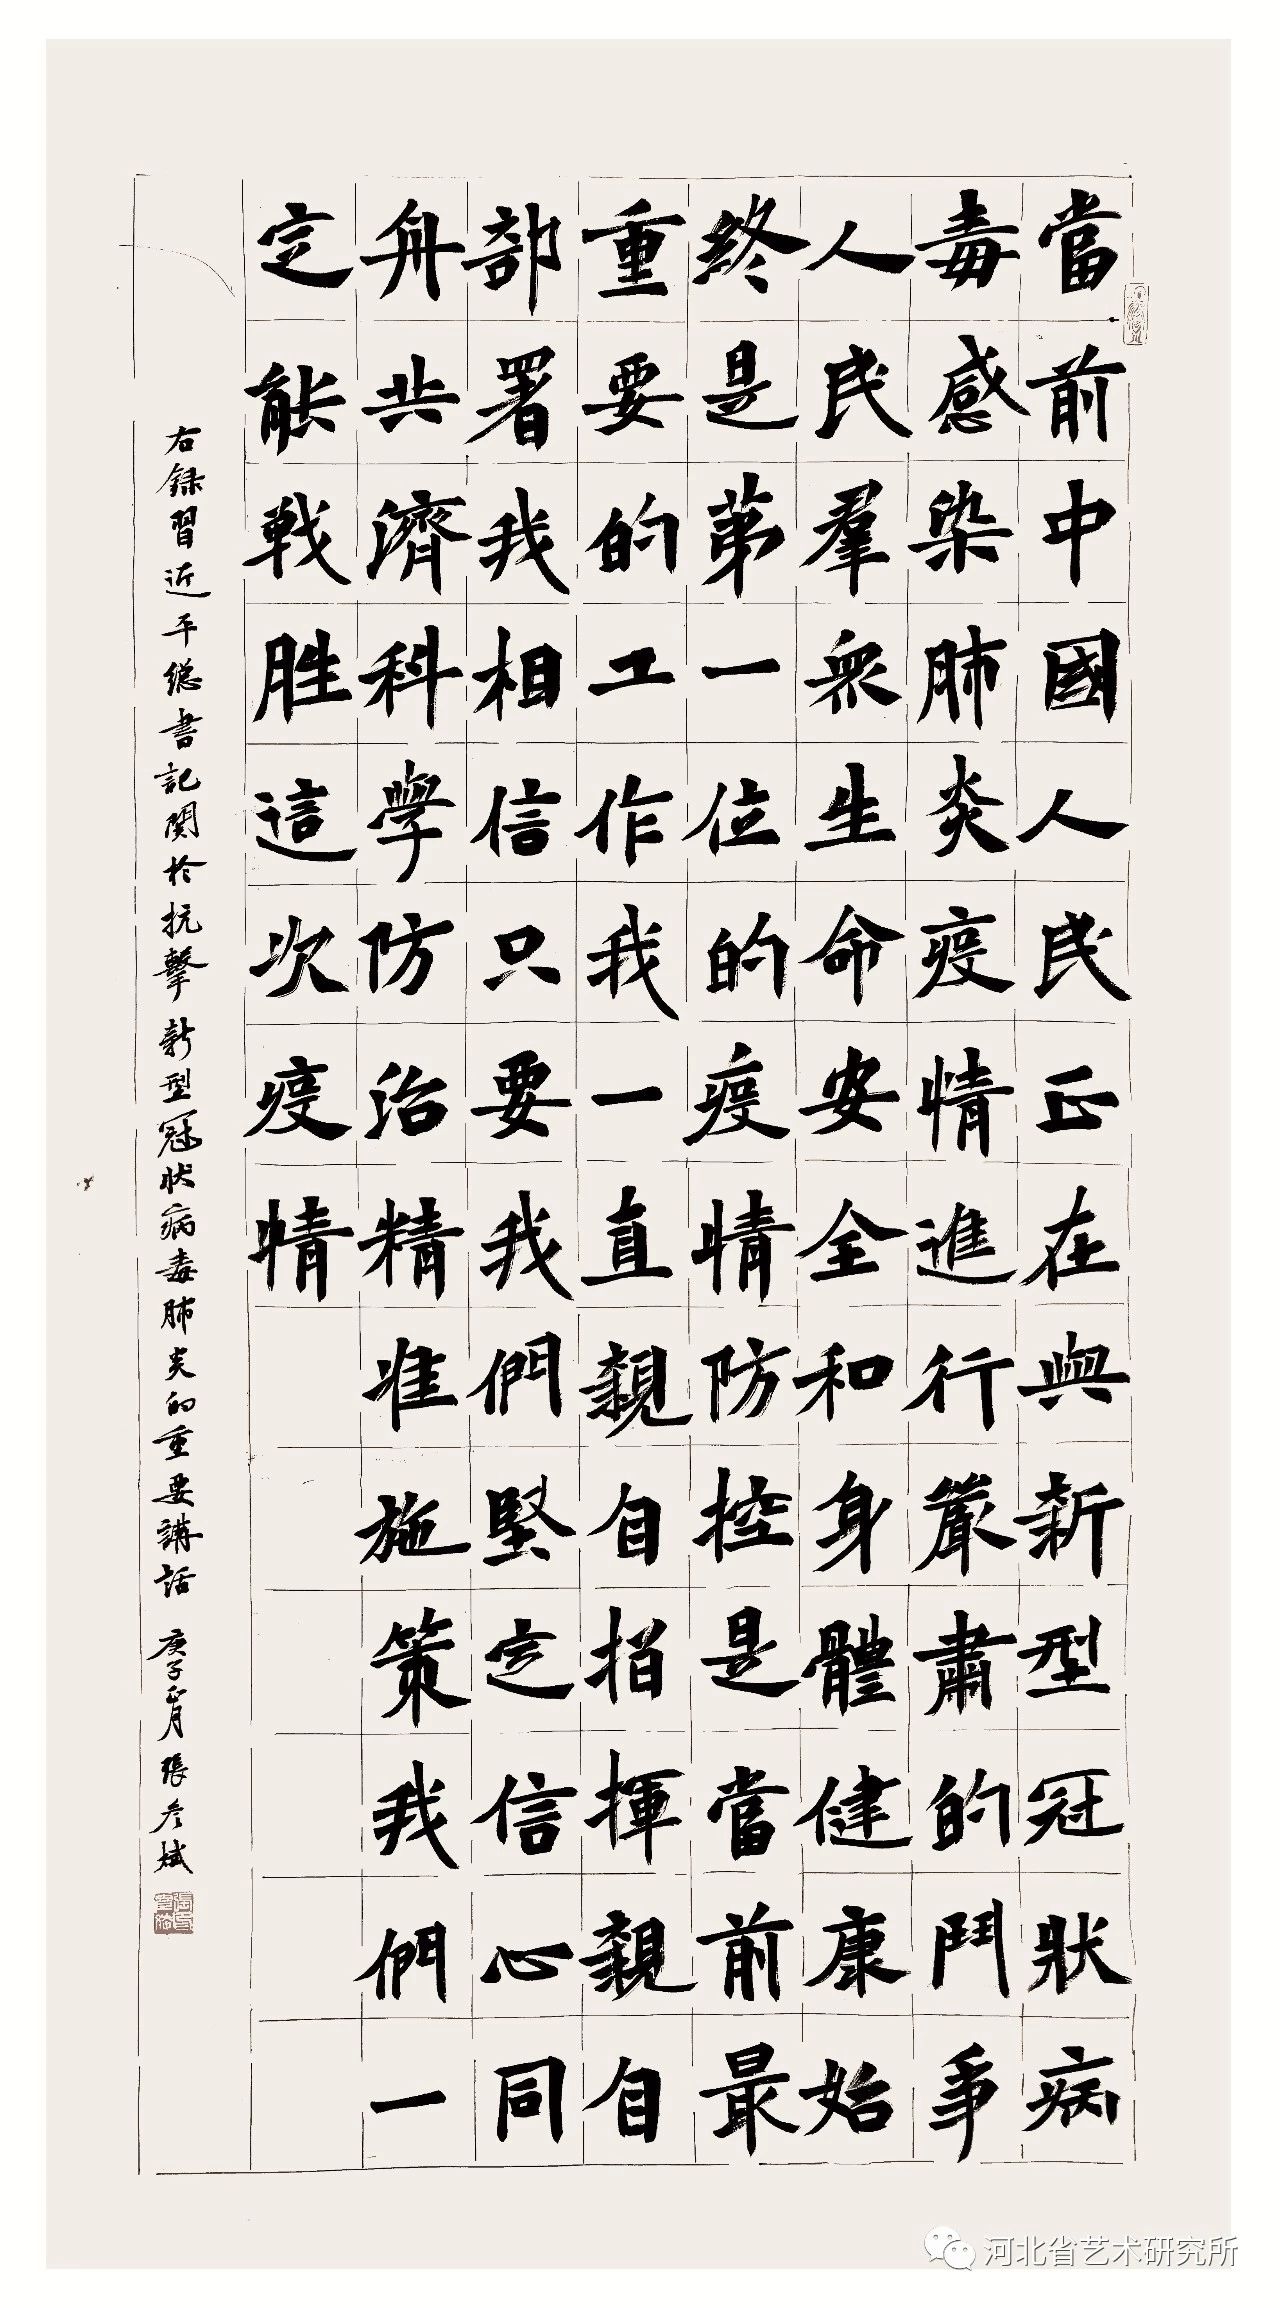 當前中國人民正在與新型冠狀病
毒感染肺炎疫情進行嚴肅的鬥爭
人民羣衆生命安全和身體健康始
終是第一位的疫情防控是當前最
重要的工作我一直親自指揮親自
部署我相信只要我們堅定信心同
舟共濟科學防治精准施策我們一
定能戰胜這次疫情
右錄習近平總書記関於抗擊新型冠狀病毒肺炎的重要講話 庚子正月 張彦斌
河北省艺术研究所